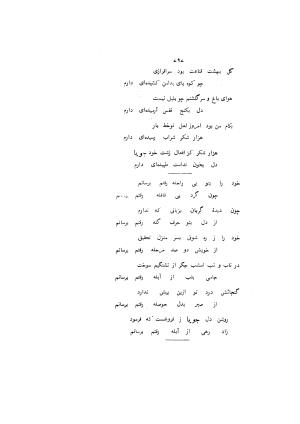 گل بهشت قناعت بود سرافرازی
چو کوه پای بدامن کشیده‌ای دارم
هوای باغ و سرگشتم چو بلبل نیست
دل بکنج قفس آرمیده‌ای دارم
بکام من بود امروز لعل نوخط یار
هزار شکر شراب رسیده‌ای دارم
هزار شکر کز افعال زشت خود جویا
دل بخون ندامت طپیده‌ای دارم
خود را بتو بی راحله رفتم برسانم
چون گرد بی قافله رفتم برسانم
چون دیدهٔ گریان بزبانی که ندارم
از دل بتو حرف گله رفتم برسانم
خود را ز ره شوق بسر منزل تحقیق
از خویش دو صد مرحله رفتم برسانم
در تاب و تب امشب جگر از تشنگیم سوخت
جامی بلب از آبله رفتم برسانم
گنجایش درد تو ازین بیش ندارد
از صبر بدل حوصله رفتم برسانم
روشن دل جویا ز فروغیست که فرمود
زاد رهی از آبله رفتم برسانم